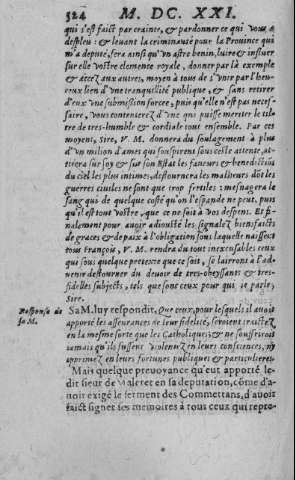 524 M. DC. XXI.
qui s'est faict par crainte, & pardonner ce qui vous a
despleu: & leuant la criminauté pour la Prouince qui
m'a deputé, sera ainsi qu'vn astre benin, luire & influer
sur elle vostre clemence royale, donner par là exemple
& accez aux autres, moyen à tous de s'vnir par l'heu-
reux lien d'vne tranquillité publique, & sans retirer
d'eux vne submission forcee, puis qu'elle n'est pas neces-
saire, vous contenterez d'vne qui puisse meriter le til-
tre de tres-humble & cordiale tout ensemble. Par ces
moyens, Sire, V. M. donnera du soulagement à plus
d'vn milion d'ames qui souspirent sous ceste attente, at-
tirera sur soy & sur son Estat les faueurs & benedictiõs
du ciel les plus intimes, destournera les malheurs dõt les
guerres ciuiles ne sont que trop fertiles: mesnagera le
sang qui de quelque costé qu'on l'espande ne peut, puis
qu'il est tout vostre, que ce ne soit à vos despens. Et fi-
nalement pour auoir adiousté les signalez bienfaicts
de graces & de paix à l'obligation sous laquelle naissent
tous François, V. M. rendra du tout inexcusables ceux
que sous quelque pretexte que ce soit, se lairront à l'ad-
uenir destourner du deuoir de tres-obeyssants & tres-
fidelles subiects, tels que sont ceux pour qui ie parle,
Sire.
Responce de
sa M.
Sa M. luy respondit, Que ceux, pour lesquels il auoit
apporté les asseurances de leur fidelité, seroient traictez
en la mesme sorte que les Catholiques; & ne souffriroit
iamais qu'ils fussent violentez en leurs consciences, ny
opprimez en leurs fortunes publiques & particulieres.
Mais quelque preuoyance qu'eut apporté le-
dit sieur de Maleret en sa deputation, cõme d'a-
uoir exigé le serment des Commettans, d'auoir
faict signer ses memoires à tous ceux qui repre-